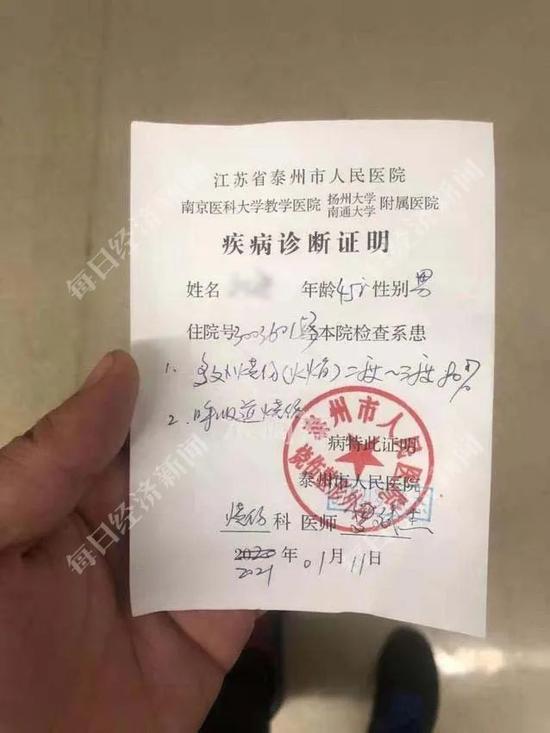 江苏省泰州市人民医院
南京医科大学教学医院 扬州大学 南通大学 附属医院
疾病诊断证明
姓名 年龄45岁性别男
住院号 经本院检查系患
1. 多处烧伤(火焰)二度~三度80%
2. 呼吸道烧伤
病特此证明
泰州市人民医院
烧伤科 医师
2020年01月11日
2021
泰州市人民医院
烧伤整形外科
每日经济新闻
每日经济新闻
每日经济新闻
每日经济新闻